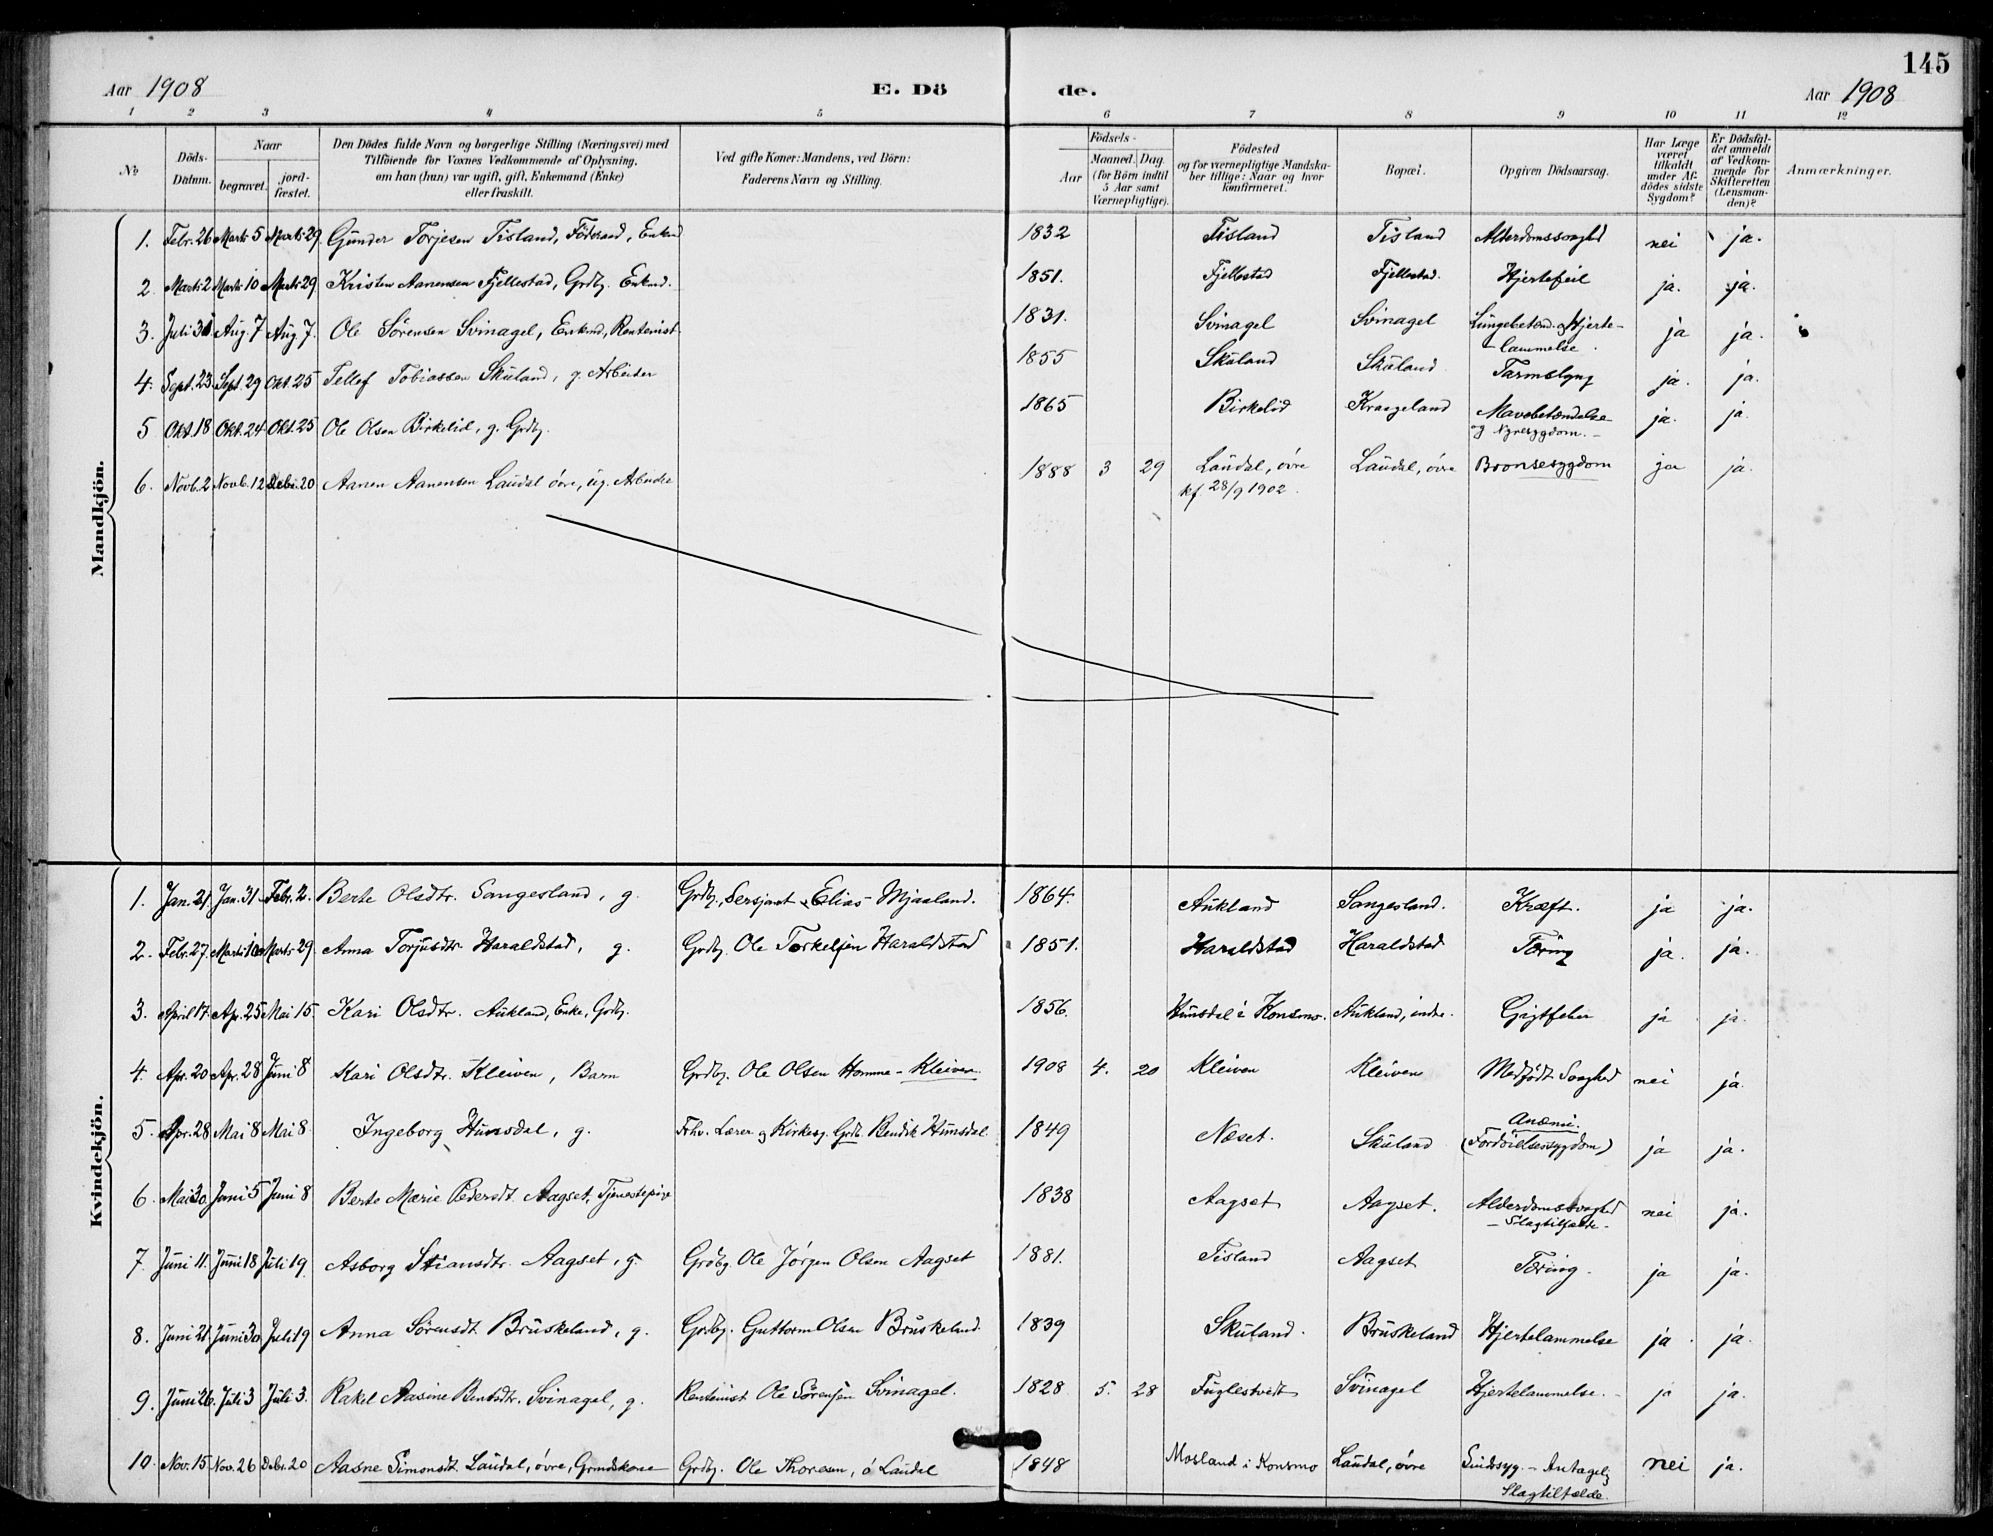 145
Aar 1908 E. Dö de. Aar 1908
1 2 3 4 5 6 7 8 9 10 11 12
№ Döds-Datum. Naar begravet. jord-fæstet. Den Dödes fulde Navn og borgerlige Stilling (Næringsvei) med Tilföiende for Voxnes Vedkommende af Oplysning, om han (hun) var ugift, gift, Enkemand (Enke) eller fraskilt. Ved gifte Koner: Mandens, ved Börn: Faderens Navn og Stilling. Födsels- Aar Maaned. Dag. (for Börn indtil 5 Aar samt Værnepligtige). Födested og for værnepligtige Mandskaber tillige: Naar og hvor konfirmeret. Bopæl. Opgiven Dödsaarsag. Har Læge været tilkaldt under Afdödes sidste Sygdom? Er Dödsfaldet anmeldt af Vedkommende for Skifteretten (Lensmanden)? Anmærkninger.
Mandkjön.
1. Febr. 26 Marts 5 Marts 29 Gunder Torjesen Tisland, Föderaad, Enkmd 1832 Tisland Tisland Alderdomssvaghed nei ja.
2. Marts 2 Marts 10 Marts 29 Kristen Aanensen Fjellestad, Grdbg. Enkmd. 1851. Fjellestad Fjellestad. Hjertefeil ja. ja.
3. Juli 31 Aug. 7 Aug. 7. Ole Sörensen Svinagel, Enkmd, Rentenist 1831. Svinagel Svinagel Lungebetænd. og Hjerte-
lammelse. ja ja.
4. Sept. 23 Sept. 29 Okt. 25 Tellef Tobiassen Skuland, g. Arbeider 1855 Skuland Skuland Tarmslyng ja. ja.
5 Okt. 18 Okt. 24 Okt. 25 Ole Olsen Birkelid, g. Grdbg. 1865 Birkelid Kraageland Mavebetændelse
og Nyresygdom. ja. ja.
6. Novb. 2 Novb. 12 Debr. 20 Aanen Aanensen Laudal övre, ug. Arbeider 1888 3 29 Laudal, övre Laudal, övre Bronsesygdom ja ja.
kf 28/9 1902.
Kvindekjön.
1. Jan. 21. Jan. 31 Febr. 2. Berte Olsdtr. Sangesland, g. Grdbg., Sersjant Elias Mjaaland. 1864. Aukland Sangesland. Kræft. ja ja.
2. Febr. 27. Marts 10 Marts 29. Anna Torjusdtr Haraldstad, g. Grdbg. Ole Torkelsen Haraldstad 1851. Haraldstad Haraldstad Tæring ja. ja.
3. April 17. Apr. 25 Mai 15. Kari Olsdtr. Aukland, Enke, Grdbg. 1856. Hunsdal i Konsmo. Aukland, indre. Gigtfeber ja ja.
4. Apr. 20 Apr. 28 Juni 8 Kari Olsdtr. Kleiven, Barn Grdbg. Ole Olsen Homme-Kleiven. 1908 4. 20 Kleiven Kleiven Medfödt Svaghed nei ja.
5. Apr. 28 Mai 8 Mai 8 Ingeborg Hunsdal, g. Frhv. Lærer og Kirkesg. Grdb. Bendik Hunsdal 1849 Næset. Skuland Anæmi.
(Fordöielsessygdom) ja ja.
6. Mai 30 Juni 5 Juni 8 Berte Marie Pedersdt. Aagset, Tjenestepige 1838 Aagset Aagset. Alderdomssvaghed
- Slagtilfælde - nei ja.
7. Juni 11. Juni 18 Juli 19. Asborg Stiansdtr. Aagset, g. Grdbg. Ole Jörgen Olsen Aagset 1881. Tisland Aagset Tæring. ja ja.
8. Juni 21. Juni 30 Juli 19 Anna Sörensdt. Bruskeland, g. Grdbg. Guttorm Olsen Bruskeland. 1839 Skuland. Bruskeland Hjertelammelse ja ja.
9. Juni 26. Juli 3 Juli 3. Rakel Aasine Bentsdtr. Svinagel, g. Rentenist Ole Sörensen Svinagel. 1828 5. 28 Fuglestvedt Svinagel Hjertelammelse. ja ja.
10. Nov. 15 Nov. 26 Debr. 20 Aasne Simonsdt. Laudal, övre, Grmdskone Grdbg. Ole Thoresen, ö Laudal 1848 Mosland i Konsmo Laudal, övre Sindssyg. - Antagelig nei ja.
Slagtilfælde.